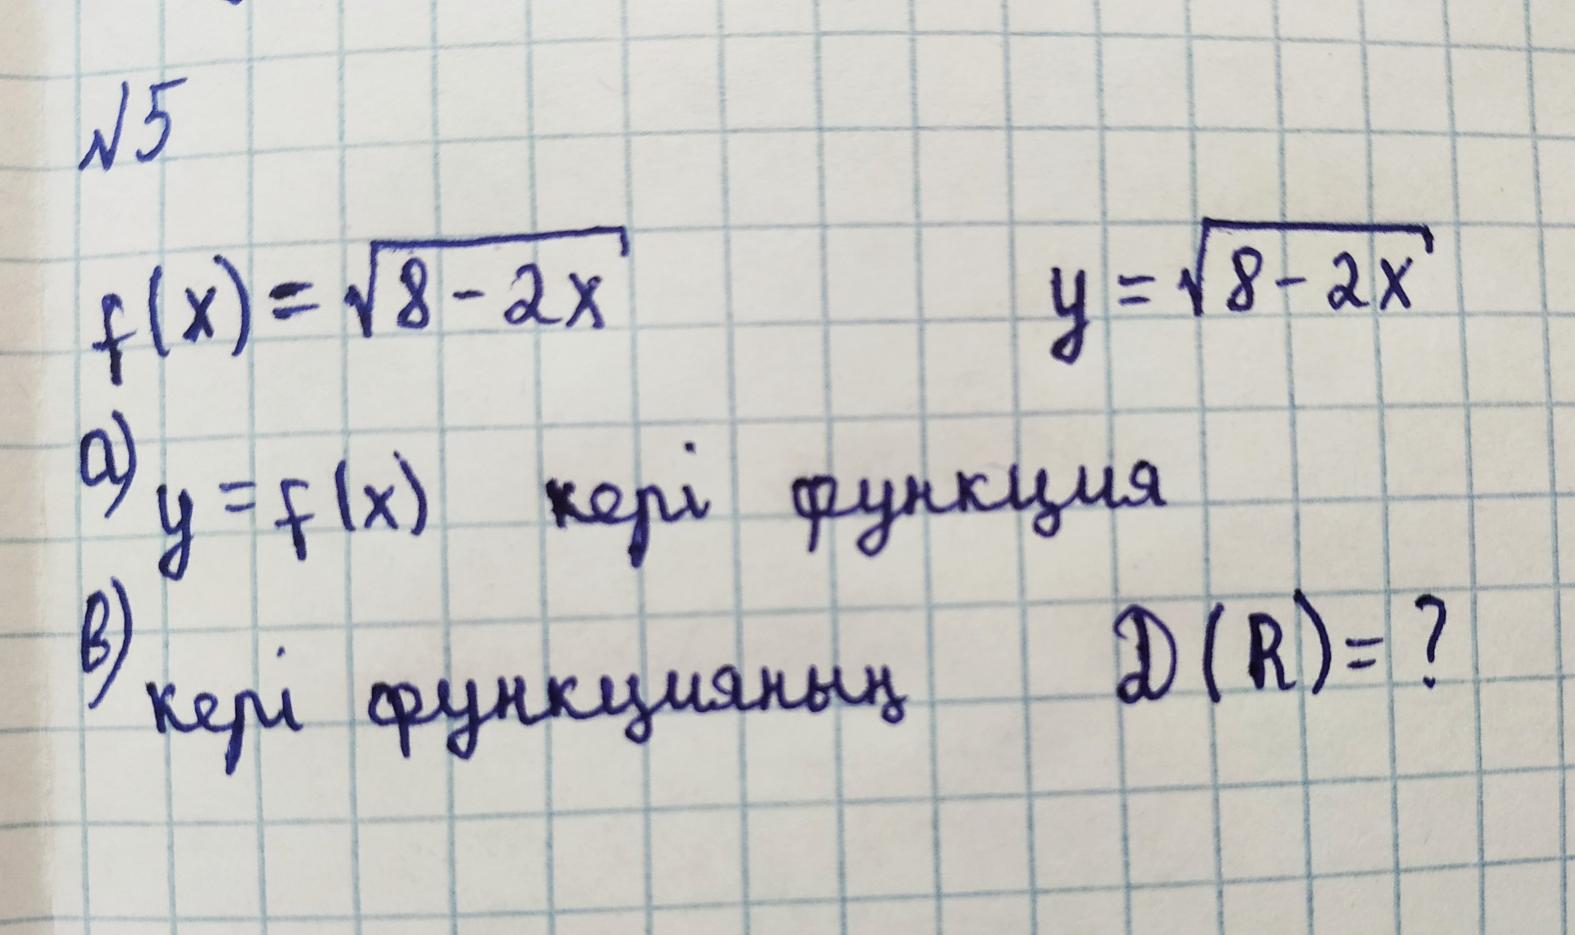 №5
f(x) = √8-2x y = √8-2x
а) y = f(x) кері функция
в) кері функцияның D(R) = ?